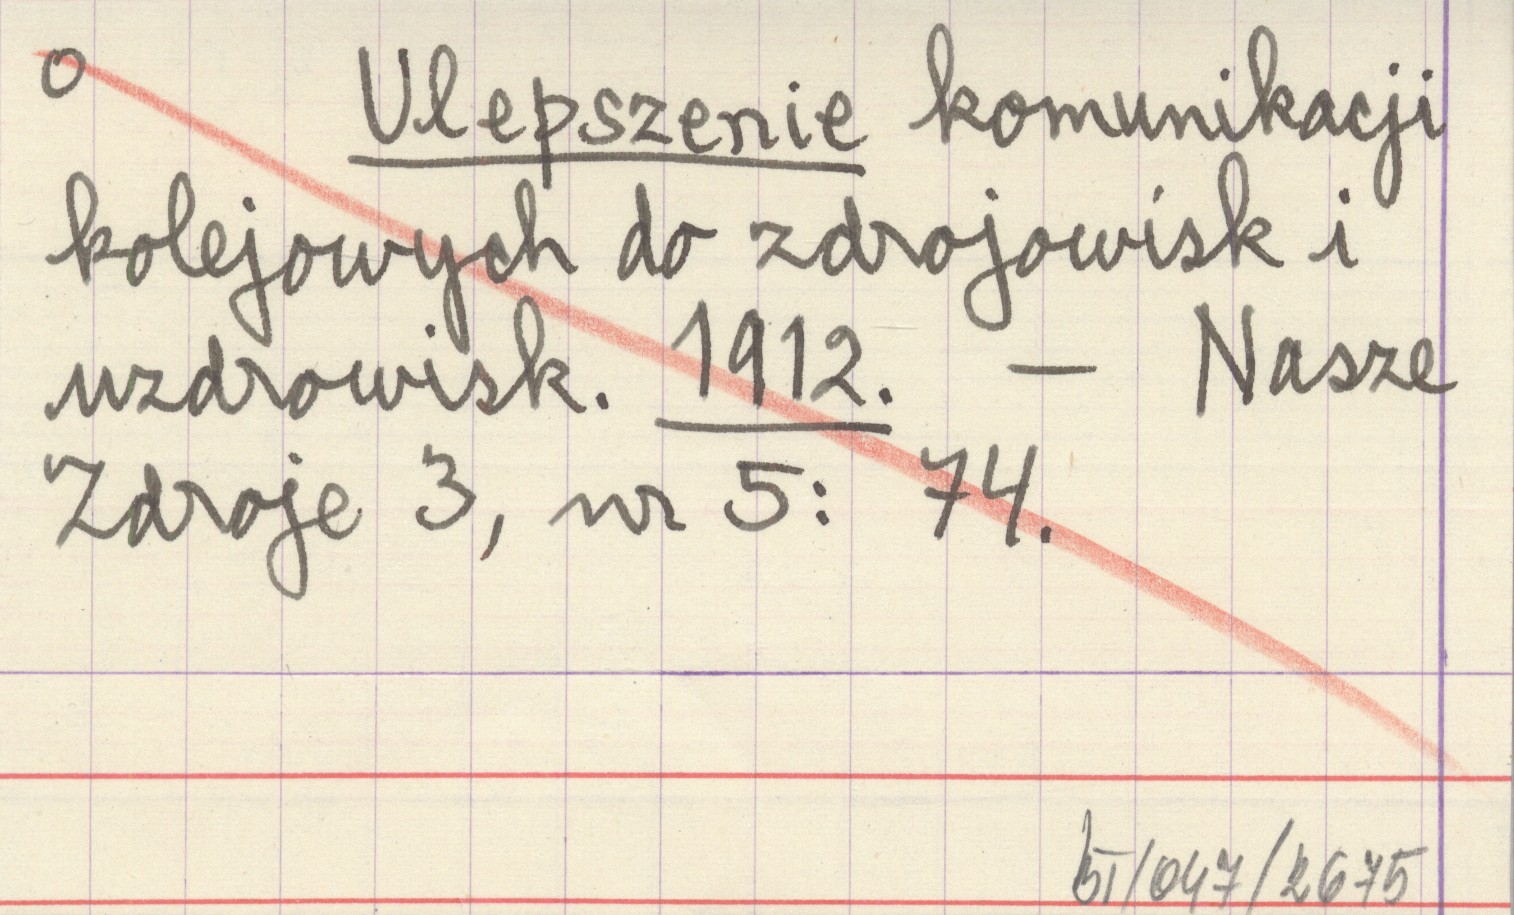 o Ulepszenie komunikacji
kolejowych do zdrojowisk i
uzdrowisk. 1912. — Nasze
Zdroje 3, nr 5: 74.
/047/2675